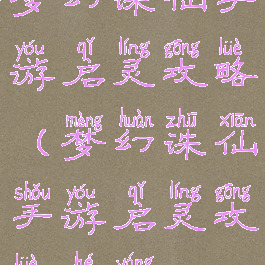 梦幻诛仙手
yóu qǐ líng gōng lüè
游启灵攻略
mèng huàn zhū xiān
(梦幻诛仙
shǒu yóu qǐ líng gōng
手游启灵攻
lüè hé yóng